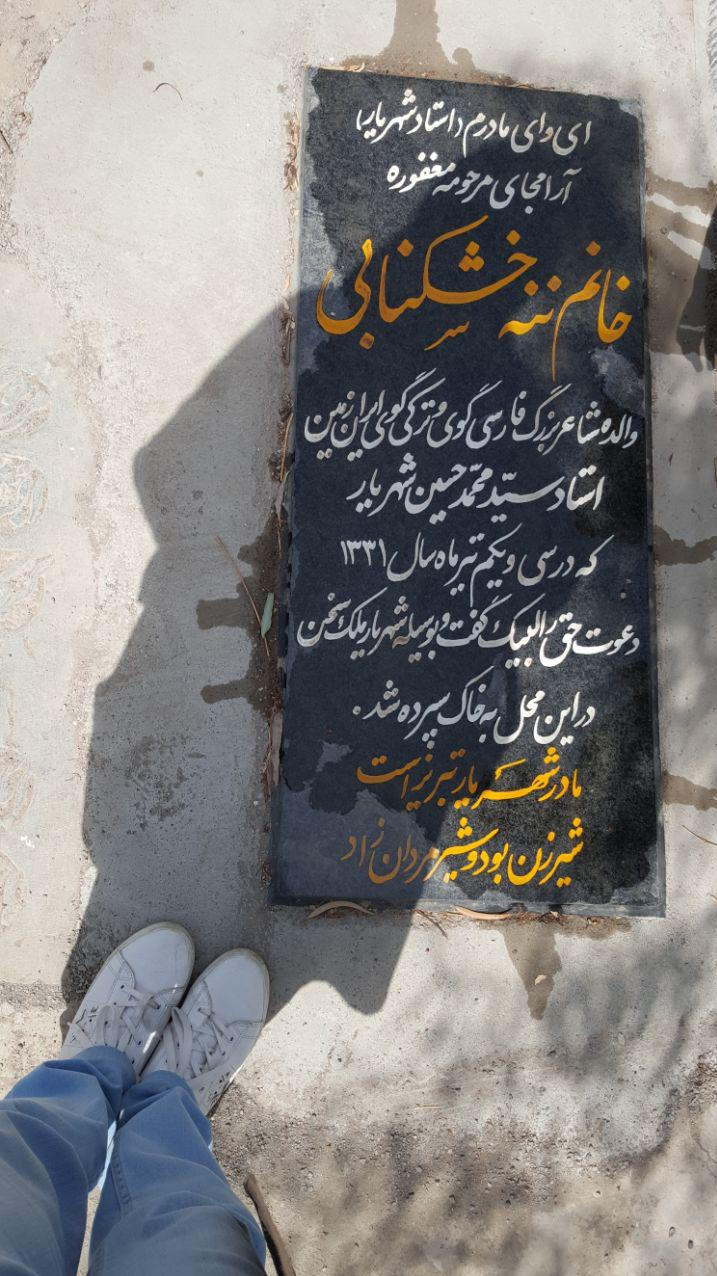 ای وای مادرم (استاد شهریار)
آرامجای مرحومه مغفوره
خانم ننه خشکنابی
والده شاعر بزرگ فارسی گوی و ترکی گوی ایران زمین
استاد سید محمد حسین شهریار
که در سی و یکم تیر ماه سال ۱۳۳۱
دعوت حق را لبیک گفت و بوسیله شهریار ملک سخن
در این محل به خاک سپرده شد.
مادر شهریار تبریز است
شیرزن بود و شیر مردان زاد